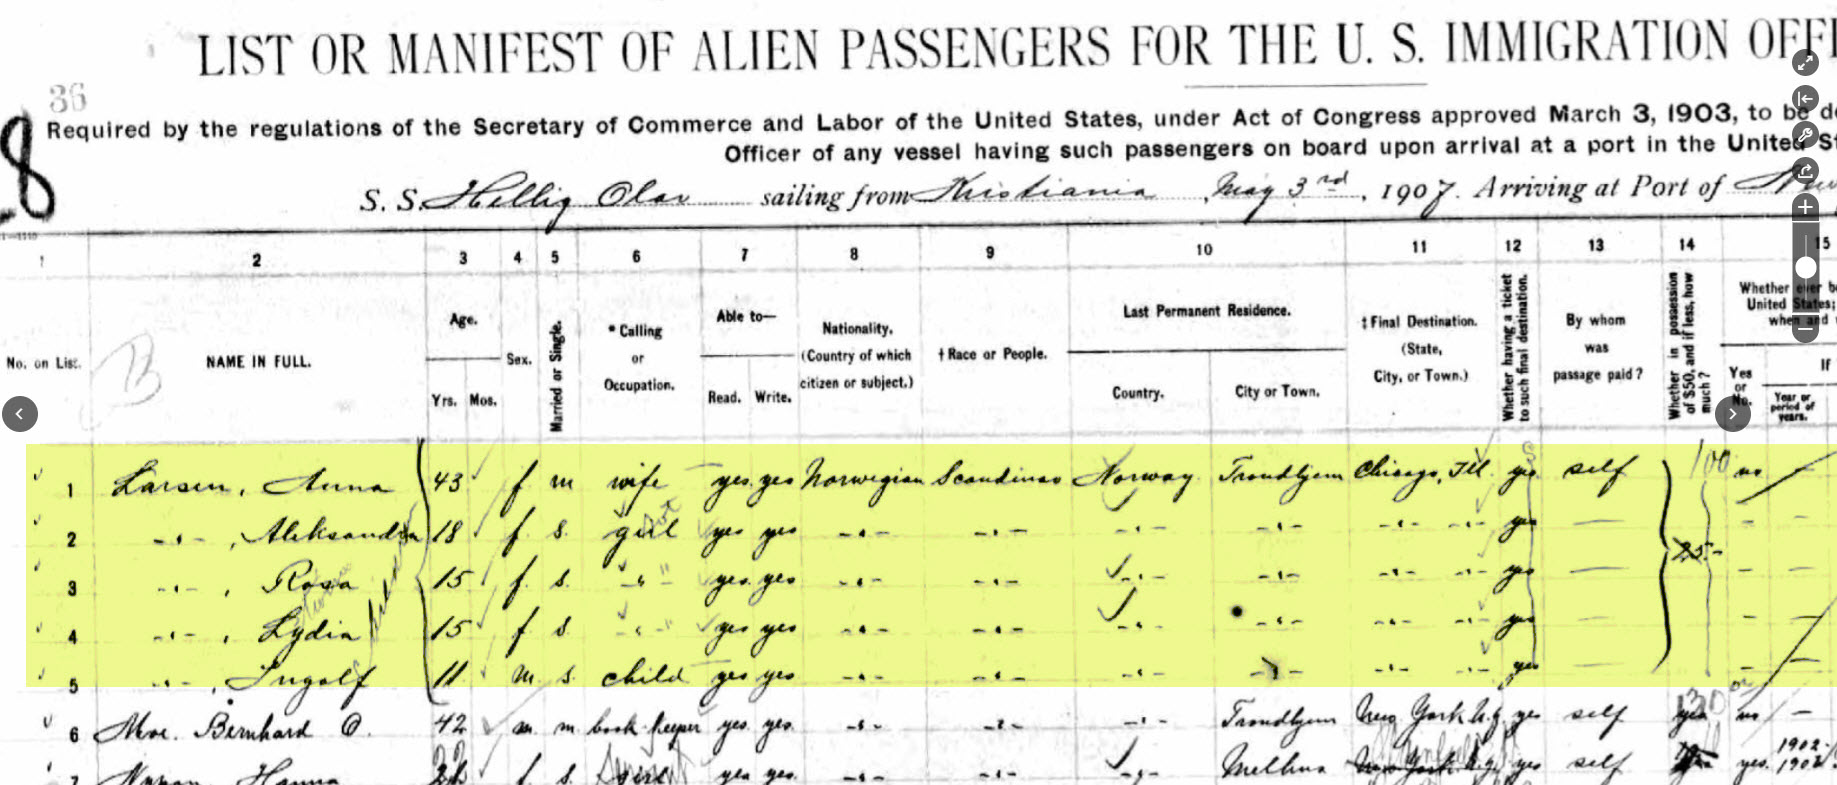 LIST OR MANIFEST OF ALIEN PASSENGERS FOR THE U. S. IMMIGRATION OFFI
36
8
Required by the regulations of the Secretary of Commerce and Labor of the United States, under Act of Congress approved March 3, 1903, to be de
Officer of any vessel having such passengers on board upon arrival at a port in the United St
S. S. Hellig Olav sailing from Kristiania, May 3rd, 1907. Arriving at Port of
1 2 3 4 5 6 7 8 9 10 11 12 13 14 15
No. on List.
B
NAME IN FULL.
Age.
Yrs. Mos.
Sex.
Married or Single.
* Calling
or
Occupation.
Able to—
Read. Write.
Nationality.
(Country of which
citizen or subject.)
† Race or People.
Last Permanent Residence.
Country. City or Town.
‡ Final Destination.
(State,
City, or Town.)
Whether having a ticket
to such final destination.
By whom
was
passage paid?
Whether in possession
of $50, and if less, how
much?
Whether ever b
United States;
when and
Yes
or
No.
If
Year or
period of
years.
1 Larsen, Anna 43 f m wife yes yes Norwegian Scandinav Norway Trondhjem Chicago, Ill. yes self 100 no
2 -"- , Aleksandra 18 f. s. girl yes yes -"- -"- -"- -"- -"- -"- yes —
3 -"- , Rosa 15 f. s. -"- yes yes -"- -"- -"- -"- -"- -"- yes — 25-
4 -"- , Lydia 15 f s. -"- yes yes -"- -"- -"- -"- -"- -"- yes —
5 -"- , Ingolf 11 m s. child yes yes -"- -"- -"- -"- -"- -"- yes —
6 Moe. Bernhard O. 42 m. m. book-keeper yes yes. -"- -"- -"- Trondhjem New York N.Y. yes self yes no —
7 Hanna 22 f s. girl yes yes. -"- -"- -"- New York N.Y. yes self yes. 1902